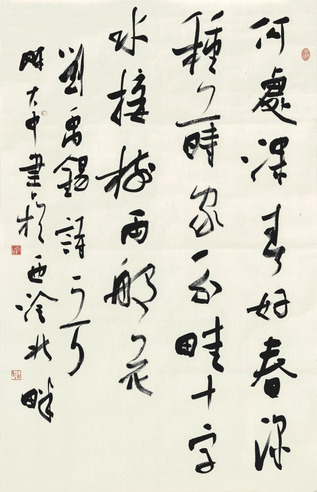 何處深春好春深
種蒔家分畦十字
水接樹兩般花
劉禹錫詩一首
陳大中書於西泠北畔